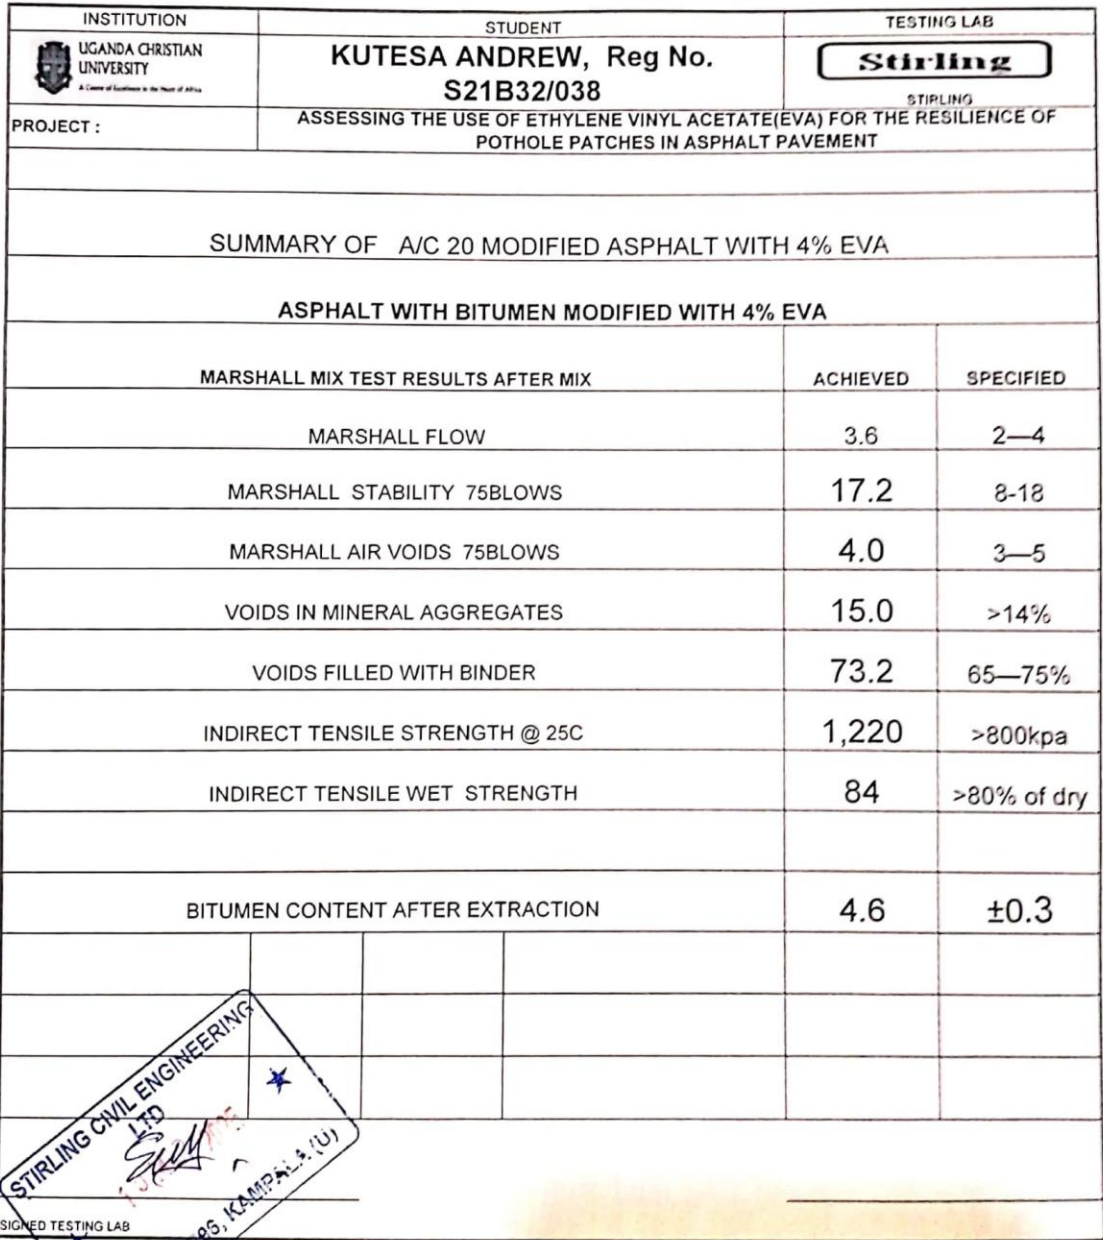 INSTITUTION
UGANDA CHRISTIAN
UNIVERSITY
A Centre of Excellence in the Heart of Africa
STUDENT
KUTESA ANDREW, Reg No.
S21B32/038
TESTING LAB
Stirling
STIRLING
PROJECT :
ASSESSING THE USE OF ETHYLENE VINYL ACETATE(EVA) FOR THE RESILIENCE OF
POTHOLE PATCHES IN ASPHALT PAVEMENT
SUMMARY OF A/C 20 MODIFIED ASPHALT WITH 4% EVA
ASPHALT WITH BITUMEN MODIFIED WITH 4% EVA
MARSHALL MIX TEST RESULTS AFTER MIX ACHIEVED SPECIFIED
MARSHALL FLOW 3.6 2—4
MARSHALL STABILITY 75BLOWS 17.2 8-18
MARSHALL AIR VOIDS 75BLOWS 4.0 3—5
VOIDS IN MINERAL AGGREGATES 15.0 >14%
VOIDS FILLED WITH BINDER 73.2 65—75%
INDIRECT TENSILE STRENGTH @ 25C 1,220 >800kpa
INDIRECT TENSILE WET STRENGTH 84 >80% of dry
BITUMEN CONTENT AFTER EXTRACTION 4.6 ±0.3
STIRLING CIVIL ENGINEERING
LTD
KAMPALA (U)
SIGNED TESTING LAB